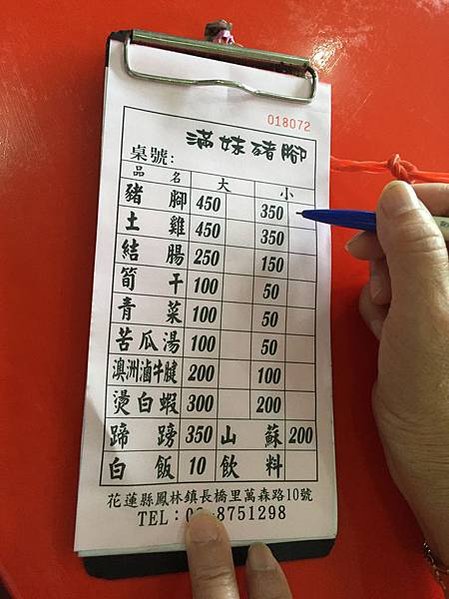 018072
滿妹豬腳
桌號:
品名 大 小
豬腳 450 350
土雞 450 350
結腸 250 150
筍干 100 50
青菜 100 50
苦瓜湯 100 50
澳洲滷牛腱 200 100
燙白蝦 300 200
蹄膀 350 山蘇 200
白飯 10 飲料
花蓮縣鳳林鎮長橋里萬森路10號
TEL:0 8751298